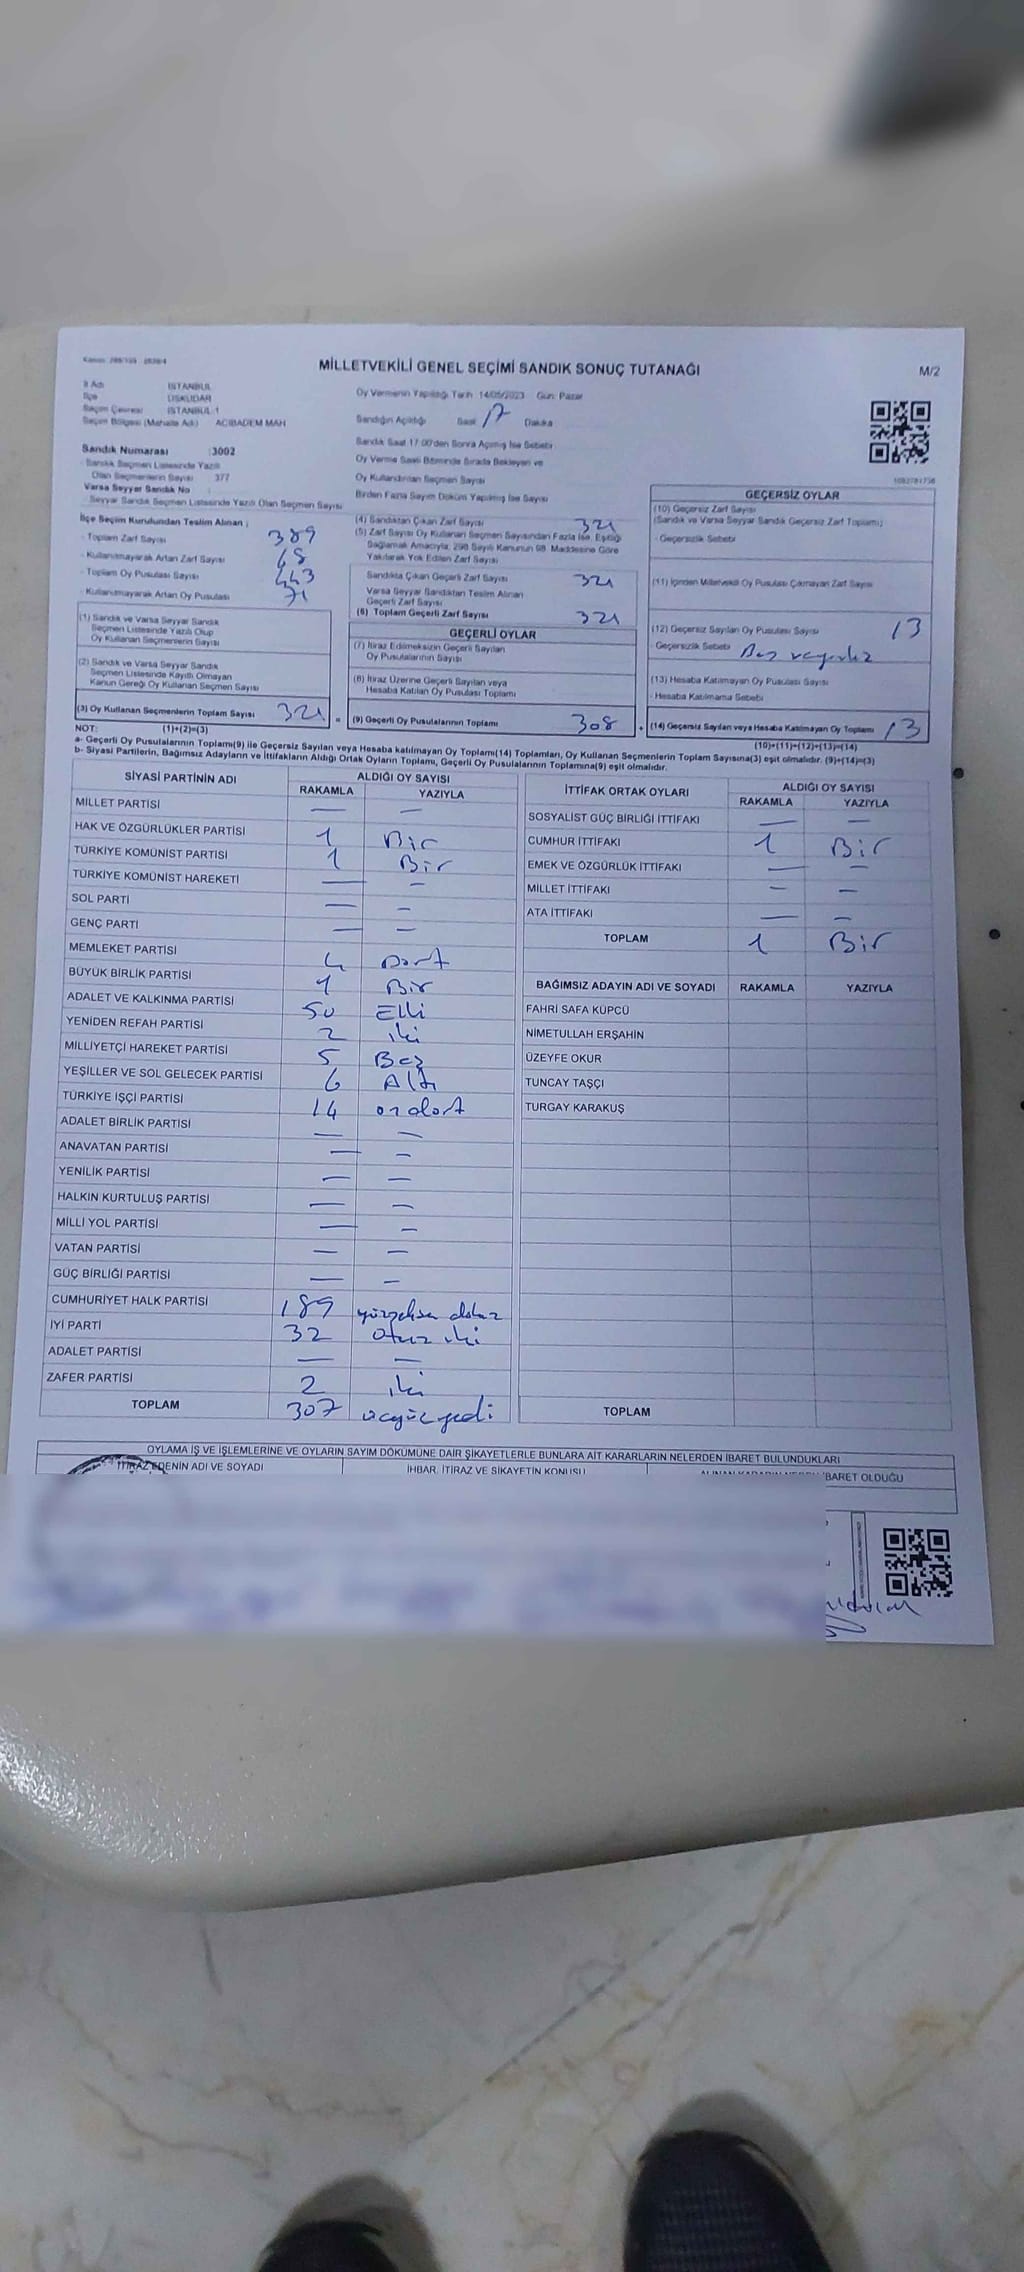 MİLLETVEKİLİ GENEL SEÇİMİ SANDIK SONUÇ TUTANAĞI
M/2
İl Adı İSTANBUL
İlçe ÜSKÜDAR
Seçim Çevresi İSTANBUL 1
Seçim Bölgesi (Mahalle Adı) ACIBADEM MAH
Sandık Numarası :3002
Sandık Seçmen Listesinde Yazılı
Olan Seçmenlerin Sayısı 377
Varsa Seyyar Sandık No
Seyyar Sandık Seçmen Listesinde Yazılı Olan Seçmen Sayısı
Oy Vermenin Yapıldığı Tarih 14/05/2023 Gün: Pazar
Sandığın Açıldığı Saat 17 Dakika
Sandık Saat 17:00'den Sonra Açılmış İse Sebebi
Oy Verme Saati Bitiminde Sırada Bekleyen ve
Oy Kullandırılan Seçmen Sayısı
Birden Fazla Sayım Döküm Yapılmış İse Sayısı
İlçe Seçim Kurulundan Teslim Alınan ;
- Toplam Zarf Sayısı 389
- Kullanılmayarak Artan Zarf Sayısı 68
- Toplam Oy Pusulası Sayısı 443
- Kullanılmayarak Artan Oy Pusulası 71
(1) Sandık ve Varsa Seyyar Sandık
Seçmen Listesinde Yazılı Olup
Oy Kullanan Seçmenlerin Sayısı
(2) Sandık ve Varsa Seyyar Sandık
Seçmen Listesinde Kayıtlı Olmayan
Kanun Gereği Oy Kullanan Seçmen Sayısı
(3) Oy Kullanan Seçmenlerin Toplam Sayısı 321 =
(4) Sandıktan Çıkan Zarf Sayısı 321
(5) Zarf Sayısı Oy Kullanan Seçmen Sayısından Fazla İse, Eşitliği
Sağlamak Amacıyla, 298 Sayılı Kanunun 98. Maddesine Göre
Yakılarak Yok Edilen Zarf Sayısı
Sandıkta Çıkan Geçerli Zarf Sayısı 321
Varsa Seyyar Sandıktan Teslim Alınan
Geçerli Zarf Sayısı
(6) Toplam Geçerli Zarf Sayısı 321
GEÇERLİ OYLAR
(7) İtiraz Edilmeksizin Geçerli Sayılan
Oy Pusulalarının Sayısı
(8) İtiraz Üzerine Geçerli Sayılan veya
Hesaba Katılan Oy Pusulası Toplamı
(9) Geçerli Oy Pusulalarının Toplamı 308 +
GEÇERSİZ OYLAR
(10) Geçersiz Zarf Sayısı
(Sandık ve Varsa Seyyar Sandık Geçersiz Zarf Toplamı)
- Geçersizlik Sebebi
(11) İçinden Milletvekili Oy Pusulası Çıkmayan Zarf Sayısı
(12) Geçersiz Sayılan Oy Pusulası Sayısı 13
Geçersizlik Sebebi
(13) Hesaba Katılmayan Oy Pusulası Sayısı
- Hesaba Katılmama Sebebi
(14) Geçersiz Sayılan veya Hesaba Katılmayan Oy Toplamı 13
NOT: (1)+(2)=(3) (10)+(11)+(12)+(13)=(14)
a- Geçerli Oy Pusulalarının Toplamı(9) ile Geçersiz Sayılan veya Hesaba katılmayan Oy Toplamı(14) Toplamları, Oy Kullanan Seçmenlerin Toplam Sayısına(3) eşit olmalıdır. (9)+(14)=(3)
b- Siyasi Partilerin, Bağımsız Adayların ve İttifakların Aldığı Ortak Oyların Toplamı, Geçerli Oy Pusulalarının Toplamına(9) eşit olmalıdır.
SİYASİ PARTİNİN ADI ALDIĞI OY SAYISI
RAKAMLA YAZIYLA
MİLLET PARTİSİ — —
HAK VE ÖZGÜRLÜKLER PARTİSİ 1 Bir
TÜRKİYE KOMÜNİST PARTİSİ 1 Bir
TÜRKİYE KOMÜNİST HAREKETİ — —
SOL PARTİ — —
GENÇ PARTİ — —
MEMLEKET PARTİSİ 4 Dört
BÜYÜK BİRLİK PARTİSİ 1 Bir
ADALET VE KALKINMA PARTİSİ 50 Elli
YENİDEN REFAH PARTİSİ 2 iki
MİLLİYETÇİ HAREKET PARTİSİ 5 Beş
YEŞİLLER VE SOL GELECEK PARTİSİ 6 Altı
TÜRKİYE İŞÇİ PARTİSİ 14 ondört
ADALET BİRLİK PARTİSİ — —
ANAVATAN PARTİSİ — —
YENİLİK PARTİSİ — —
HALKIN KURTULUŞ PARTİSİ — —
MİLLİ YOL PARTİSİ — —
VATAN PARTİSİ — —
GÜÇ BİRLİĞİ PARTİSİ — —
CUMHURİYET HALK PARTİSİ 189 yüzseksen dokuz
İYİ PARTİ 32 otuz iki
ADALET PARTİSİ — —
ZAFER PARTİSİ 2 iki
TOPLAM 307 üçyüz yedi
İTTİFAK ORTAK OYLARI ALDIĞI OY SAYISI
RAKAMLA YAZIYLA
SOSYALİST GÜÇ BİRLİĞİ İTTİFAKI — —
CUMHUR İTTİFAKI 1 Bir
EMEK VE ÖZGÜRLÜK İTTİFAKI — —
MİLLET İTTİFAKI — —
ATA İTTİFAKI — —
TOPLAM 1 Bir
BAĞIMSIZ ADAYIN ADI VE SOYADI RAKAMLA YAZIYLA
FAHRİ SAFA KÜPCÜ
NİMETULLAH ERŞAHİN
ÜZEYFE OKUR
TUNCAY TAŞÇI
TURGAY KARAKUŞ
TOPLAM
OYLAMA İŞ VE İŞLEMLERİNE VE OYLARIN SAYIM DÖKÜMÜNE DAİR ŞİKAYETLERLE BUNLARA AİT KARARLARIN NELERDEN İBARET BULUNDUKLARI
İTİRAZ EDENİN ADI VE SOYADI İHBAR, İTİRAZ VE ŞİKAYETİN KONUSU İBARET OLDUĞU